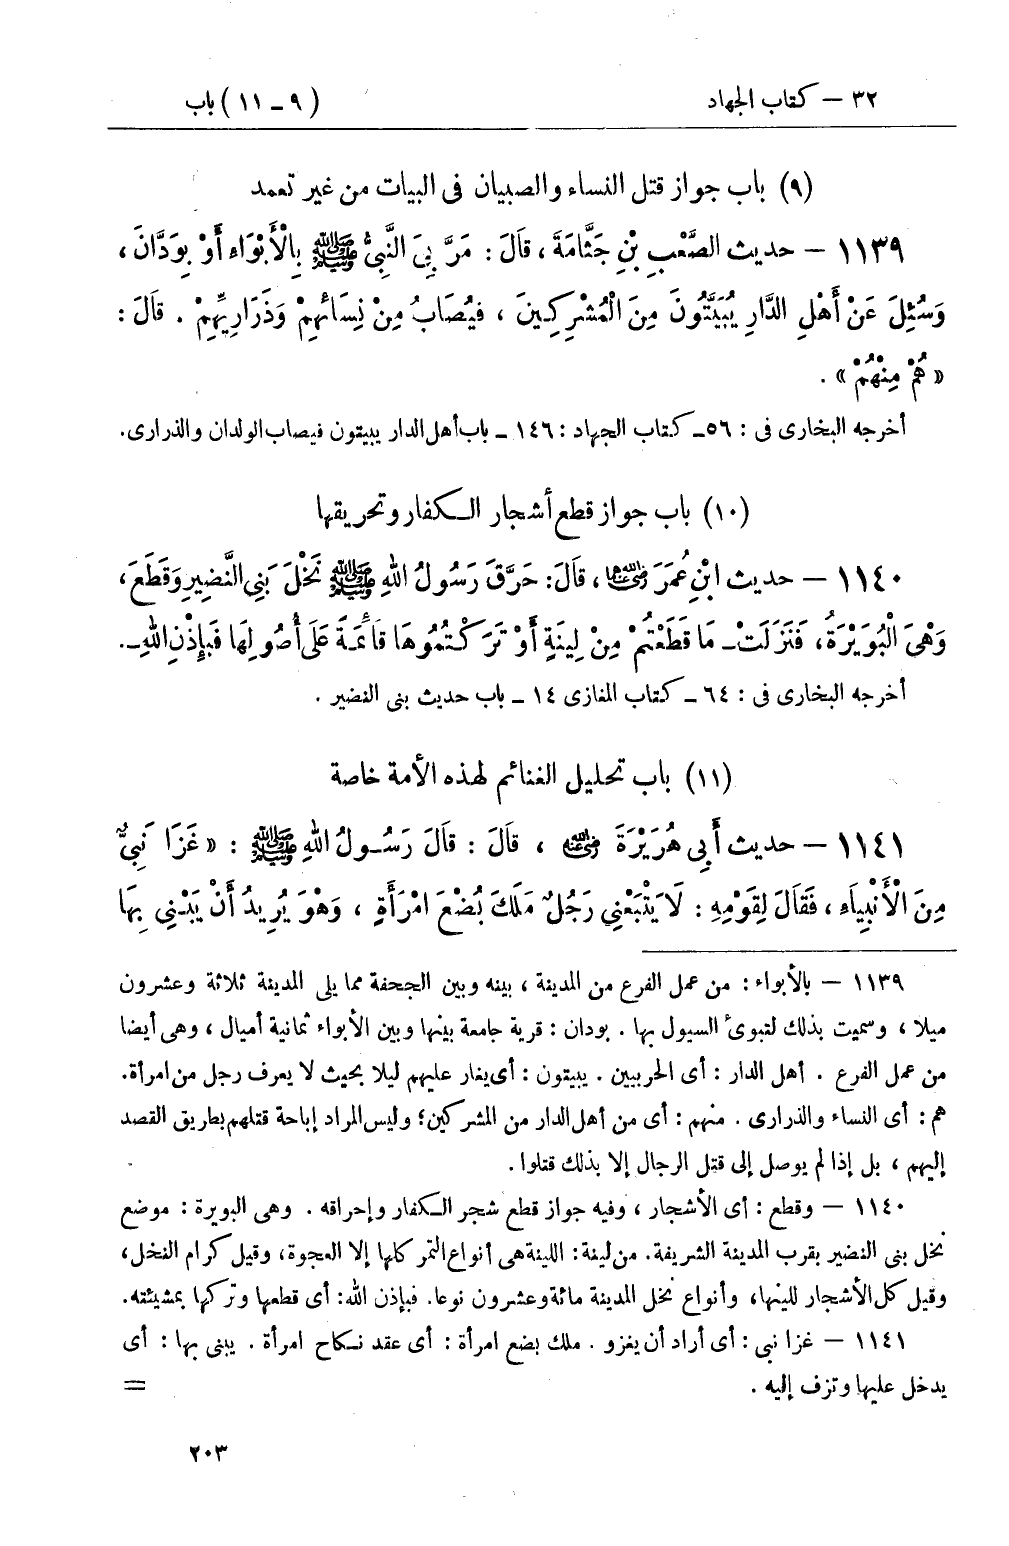 ٣٢ – كتاب الجهاد (٩ – ١١) باب
(٩) باب جواز قتل النساء والصبيان فى البيات من غير تعمد
١١٣٩ – حديث الصَّعْبِ بْنِ جَثَّامَةَ ، قَالَ : مَرَّ بِىَ النَّبِىُّ ﷺ بِالْأَبْوَاءِ أَوْ بِوَدَّانَ ،
وَسُئِلَ عَنْ أَهْلِ الدَّارِ يُبَيَّتُونَ مِنَ الْمُشْرِكِينَ ، فَيُصَابُ مِنْ نِسَائِهِمْ وَذَرَارِيِّهِمْ . قَالَ :
« هُمْ مِنْهُمْ » .
أخرجه البخارى فى : ٥٦ – كتاب الجهاد : ١٤٦ – باب أهل الدار يبيتون فيصاب الولدان والذرارى .
(١٠) باب جواز قطع أشجار الكفار وتحريقها
١١٤٠ – حديث ابْنِ عُمَرَ رضي الله عنهما ، قَالَ : حَرَّقَ رَسُولُ اللهِ ﷺ نَخْلَ بَنِى النَّضِيرِ وَقَطَعَ ،
وَهْىَ الْبُوَيْرَةُ ، فَنَزَلَتْ – مَا قَطَعْتُمْ مِنْ لِينَةٍ أَوْ تَرَكْتُمُوهَا قَائِمَةً عَلَى أُصُولِهَا فَبِإِذْنِ اللهِ – .
أخرجه البخارى فى : ٦٤ – كتاب المغازى ١٤ – باب حديث بنى النضير .
(١١) باب تحليل الغنائم لهذه الأمة خاصة
١١٤١ – حديث أَبِى هُرَيْرَةَ رضي الله عنه ، قَالَ : قَالَ رَسُولُ اللهِ ﷺ : « غَزَا نَبِىٌّ
مِنَ الْأَنْبِيَاءِ ، فَقَالَ لِقَوْمِهِ : لَا يَتْبَعْنِى رَجُلٌ مَلَكَ بُضْعَ امْرَأَةٍ ، وَهْوَ يُرِيدُ أَنْ يَبْنِىَ بِهَا
١١٣٩ – بالأبواء : من عمل الفرع من المدينة ، بينه وبين الجحفة مما يلى المدينة ثلاثة وعشرون
ميلا ، وسميت بذلك لتبوئ السيول بها . بودان : قرية جامعة بينها وبين الأبواء ثمانية أميال ، وهى أيضا
من عمل الفرع . أهل الدار : أى الحربيين . يبيتون : أى يغار عليهم ليلا بحيث لا يعرف رجل من امرأة .
هم : أى النساء والذرارى . منهم : أى من أهل الدار من المشركين ؛ وليس المراد إباحة قتلهم بطريق القصد
إليهم ، بل إذا لم يوصل إلى قتل الرجال إلا بذلك قتلوا .
١١٤٠ – وقطع : أى الأشجار ، وفيه جواز قطع شجر الكفار وإحراقه . وهى البويرة : موضع
نخل بنى النضير بقرب المدينة الشريفة . من لينة : اللينة هى أنواع التمر كلها إلا العجوة ، وقيل كرام النخل ،
وقيل كل الأشجار للينها ، وأنواع نخل المدينة مائة وعشرون نوعا . فبإذن الله : أى قطعها وتركها بمشيئته .
١١٤١ – غزا نبى : أى أراد أن يغزو . ملك بضع امرأة : أى عقد نكاح امرأة . يبنى بها : أى
يدخل عليها وتزف إليه . =
٢٠٣